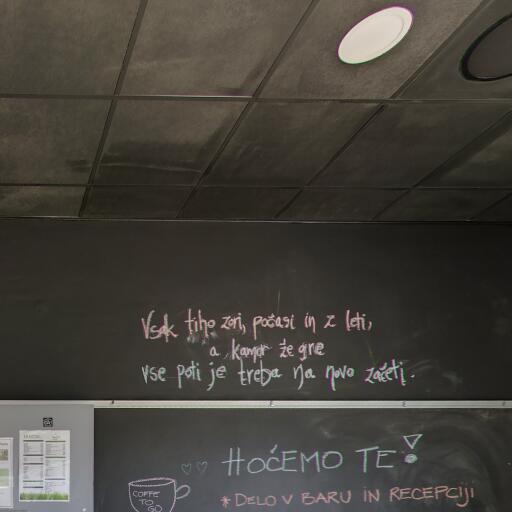 Vsak tiho zori, počasi in z leti,
a kamor že gre
vse poti je treba na novo začeti.
HOČEMO TE!
COFFE
TO
GO
*DELO V BARU IN RECEPCIJI